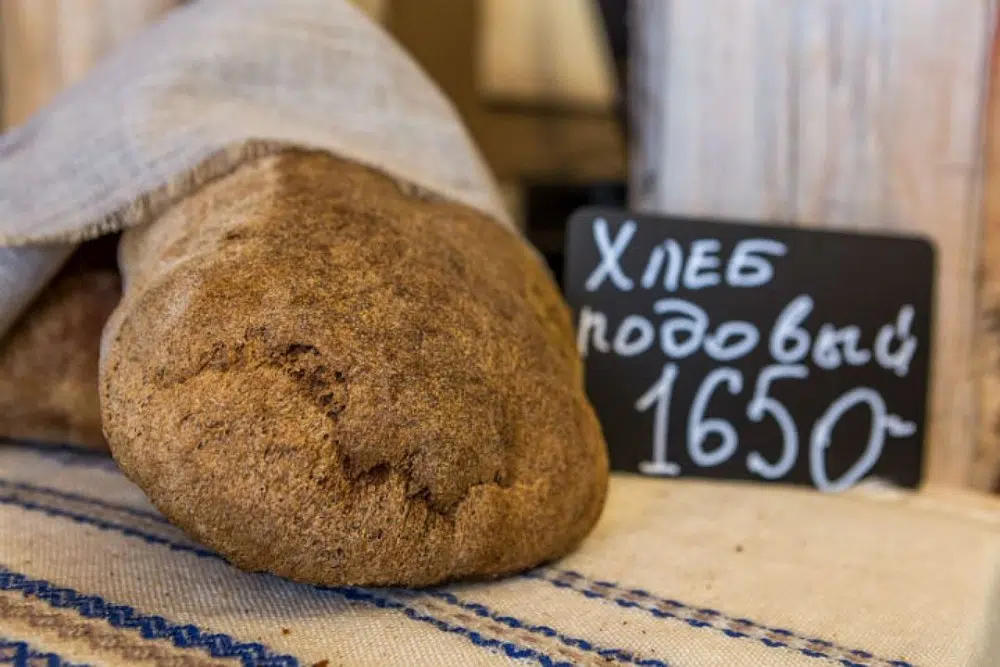 ХЛЕБ
подовый
1650-